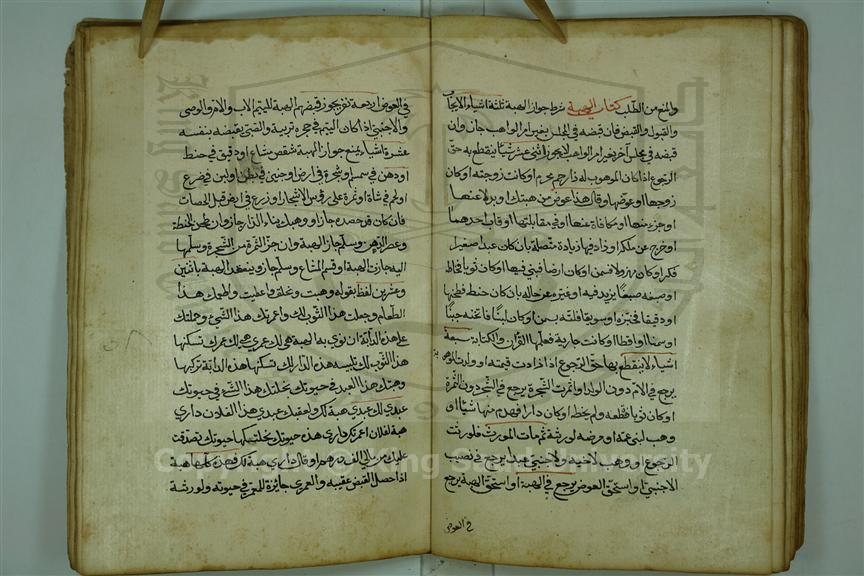 والمنع من الطلب كتاب الهبة شرط جواز الهبة ثلثة اشياء الايجاب
والقبول والقبض فان قبضه في المجلس بغير امر الواهب جاز وان
قبضه في مجلس آخر بغير امر الواهب لا يجوز اثنى عشر شيئا ينقطع به حق
الرجوع اذا كان الموهوب له ذا رحم محرم او كانت زوجته او كان
زوجها او عوضها وقال هذا عوض من هبتك او بدلا عنها
او جزء منها او مكافاة عنها او في مقابلتها او مات احدهما
او خرج عن ملكه او زاد فيها زيادة متصلة بان كان عبدا صغيرا
فكبر او كان مهزولا فسمن او كان ارضا فبنى فيها او كان ثوبا فخاط
او صبغه صبغا يزيد فيه او غيره عن حاله بان كان حنطة فطحنها
او دقيقا فخبزه او سويقا فلته بسمن او كان لبنا فاتخذه جبنا
او سمنا او اقطا او كانت جارية فعلمها القرآن والكتابة سبعة
اشياء لا ينقطع بها حق الرجوع اذا زادت قيمته او ولدت الموهوبة
يرجع في الام دون الولد او اثمرت الشجرة يرجع في الشجر دون الثمرة
او كان ثوبا فقطعه ولم يخط او كان دارا فهدم منها شيئا او
وهب لبنى عمه او مرضه لورثة ثم مات المورث فلورثته
الرجوع او وهب لاخيه ولاجنبي عبدا يرجع في نصيب
الاجنبي او استحق العوض يرجع في الهبة او استحق الهبة يرجع
في العوض
في العوض اربعة نفر يجوز قبضهم الهبة لليتيم الاب والام والوصى
والاجنبي اذا كان اليتيم في حجره تربية والصبي يقبضه بنفسه
عشرة اشياء يمنع جواز الهبة شقص مشاع او دقيق في حنطة
او دهن في سمسم او شجرة في ارض او جنين في بطن او لبن في ضرع
او لحم في شاة او ثمرة على رؤس الاشجار او زرع في ارض قبل الحصاد
فان كان قد حصده جاز او وهب بناء الدار جاز وان طحن الحنطة
وعصر الدهن وسلم جاز الهبة وان جز الثمرة من الشجرة وسلمها
اليه جازت الهبة او قسم المشاع وسلم جاز وينعقد الهبة باثنين
وعشرين لفظا بقوله وهبت ونحلت واعطيت واطعمتك هذا
الطعام وجعلت هذا الثوب لك واعمرتك هذا الشئ وحملتك
على هذه الدابة ان نوى به الهبة هي لك عمرى هي لك عمرك تسكنها
هذا الثوب لك تلبسه هذه الدار لك تسكنها هذه الدابة تركبها
وهبتك هذا العبد في حيوتك نحلتك هذا الشئ في حيوتك
عبدي لك عبدي هبة لك ولعقبك عبدي هذا لفلان داري
هبة لفلان اعمرتك داري هذه حيوتك نحلتكها حيوتك تصدقت
عليك من مالي الف درهم او قال داري هبة لك فهذه كلها هبة
اذا حصل القبض عقيبه والعمرى جائزة للمعمر في حيوته ولورثته
Copyright © King Saud University